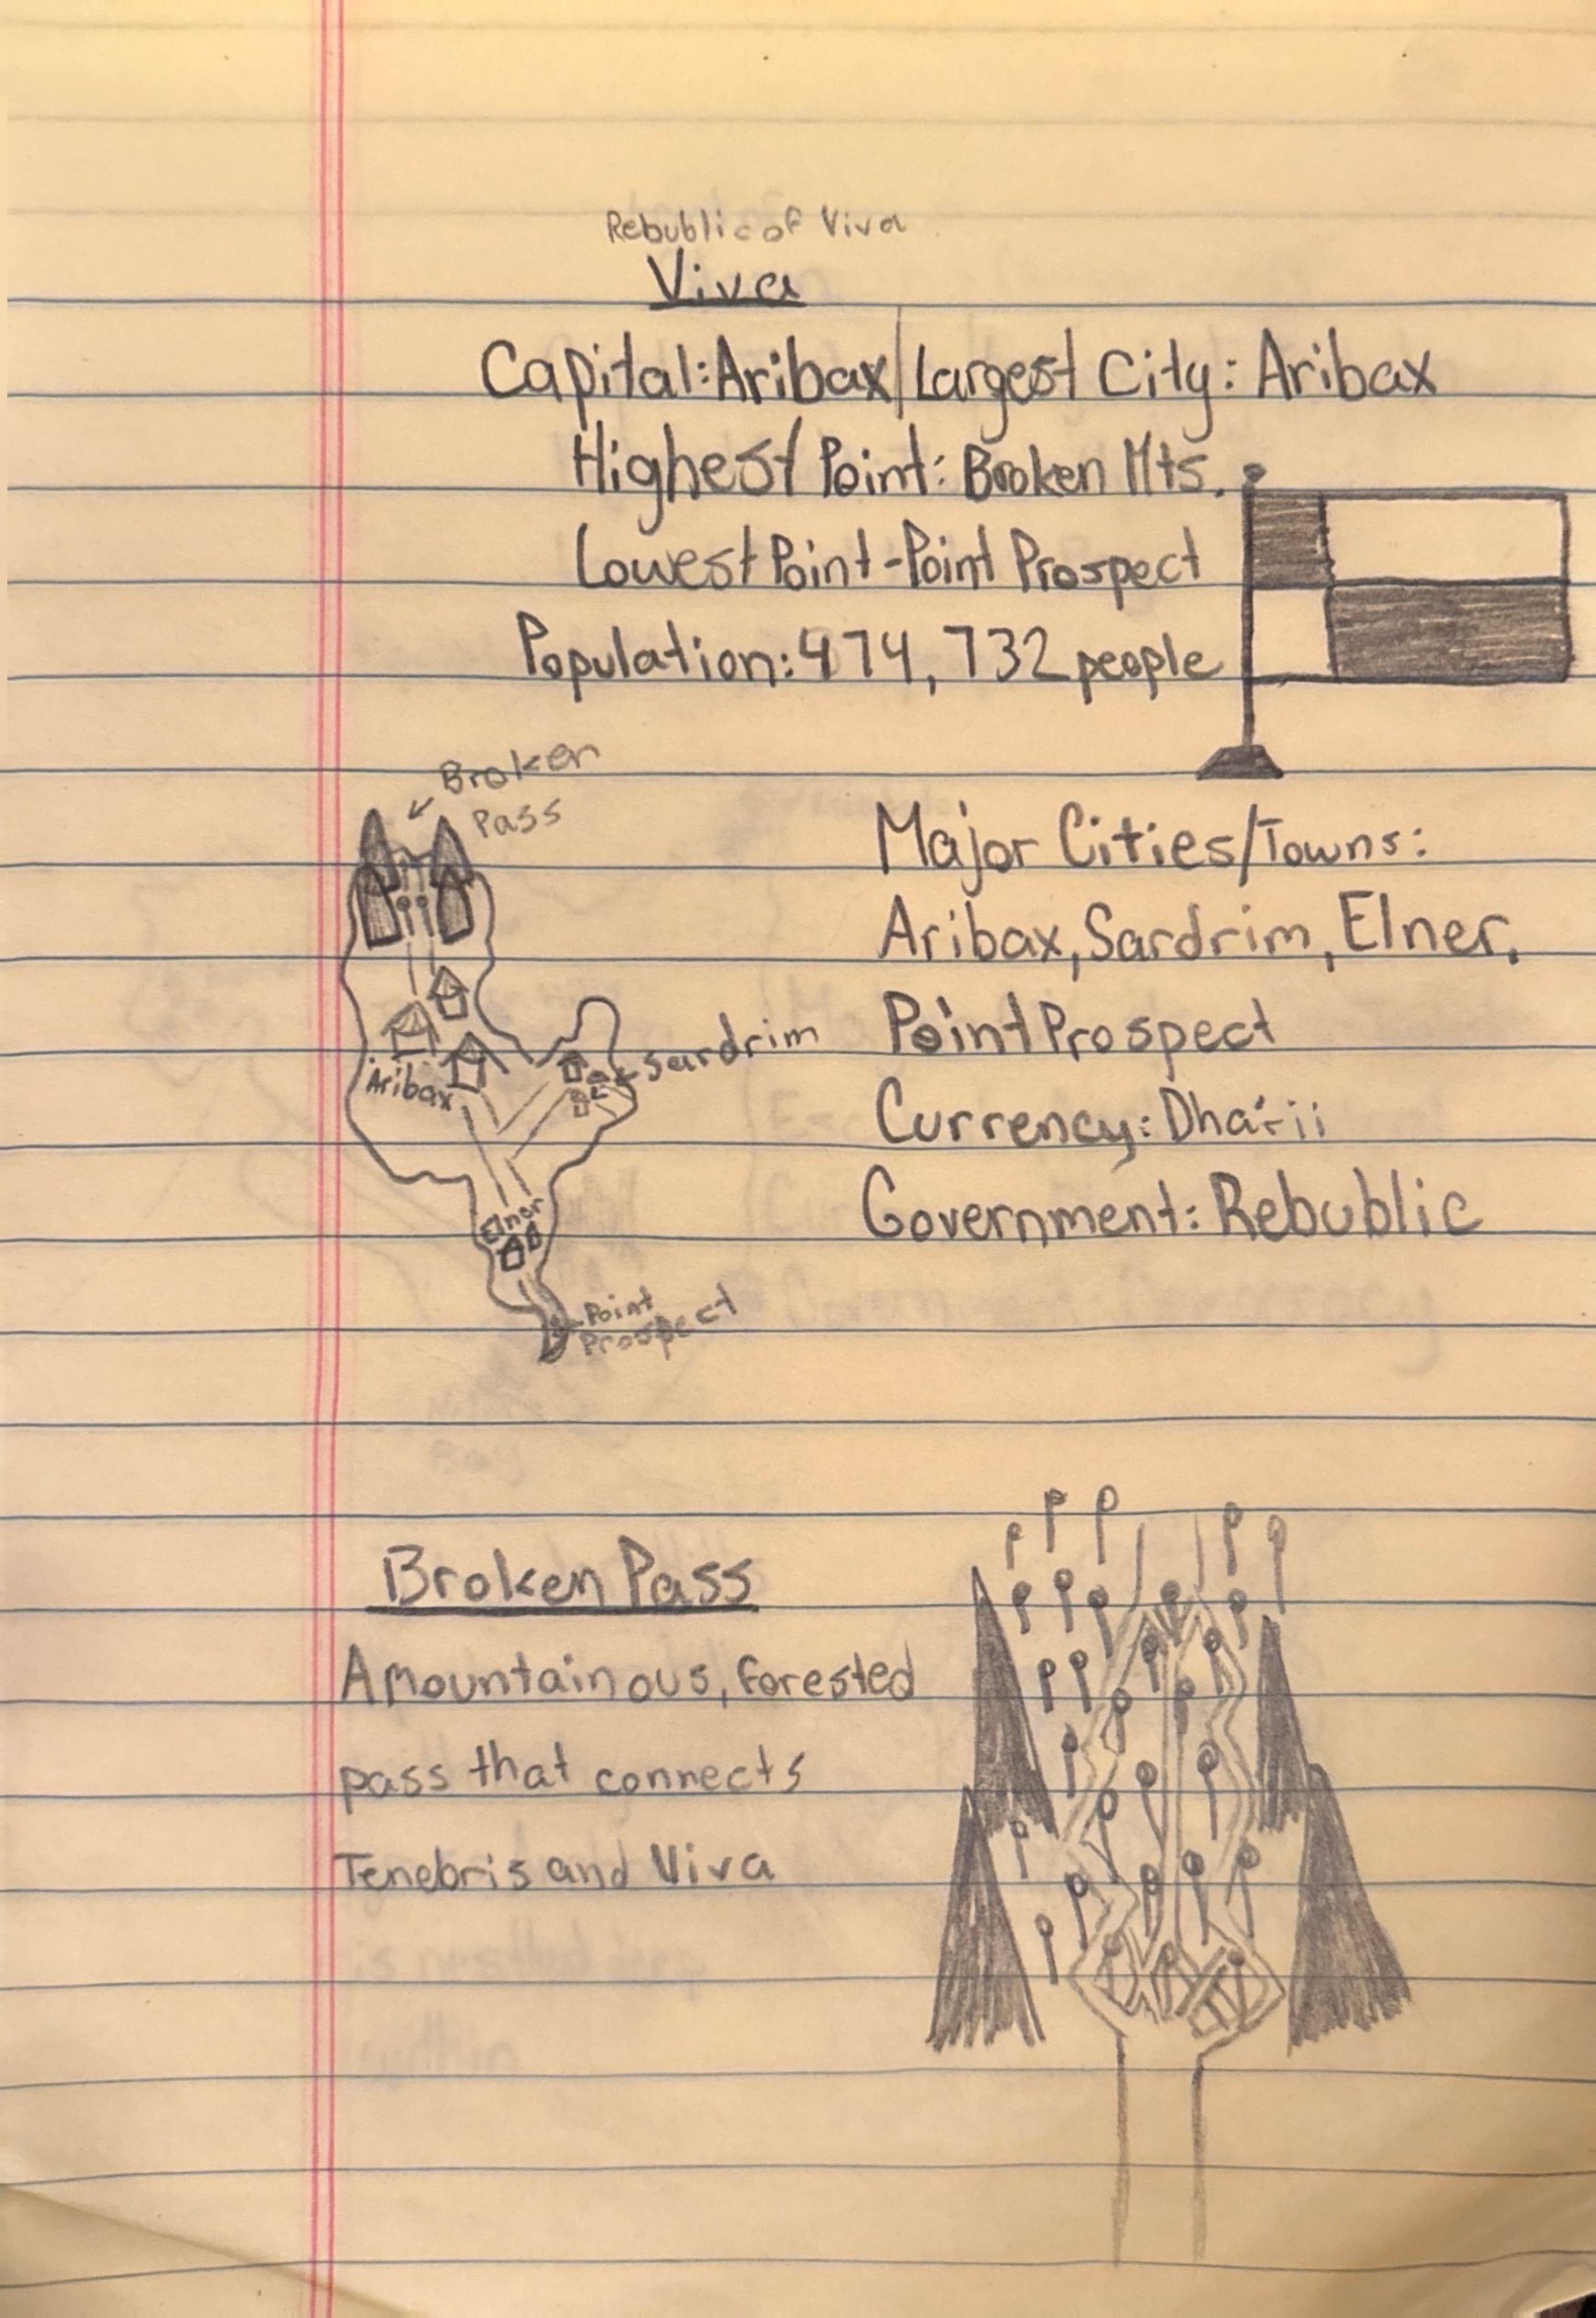 Rebublic of Viva
Viva
Capital: Aribax/Largest City: Aribax
Highest Point: Broken Mts.
Lowest Point-Point Prospect
Population: 474,732 people
Broken
Pass
Major Cities/Towns:
Aribax, Sardrim, Elner,
Point Prospect
Currency: Dharii
Government: Rebublic
Aribax
Sardrim
Elner
Point
Prospect
Broken Pass
A mountainous, forested
pass that connects
Tenebris and Viva